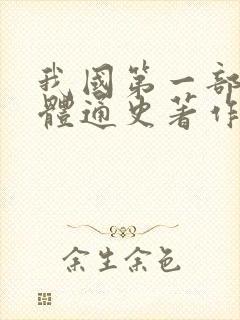 我國第一部
體通史著作
余生余色